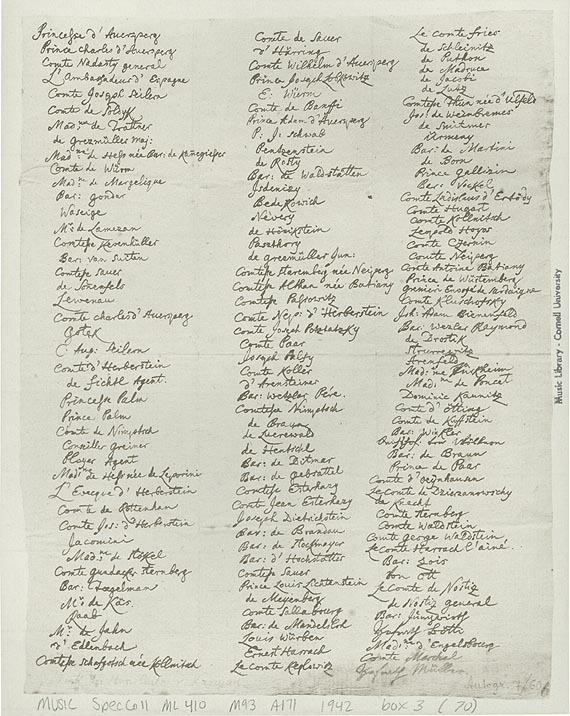 Princesse d'Auersperg
Prince charles d'Auersperg
Comte Nadasty general
L'Ambassadeur d'Espagne
Comte Joseph Seilern
Comte de Soltyk
Mad:me de Trattner
de grezmüller maj:
Mad:me de Hess née Bar: de
Comte de Würm
Mad:me de Margelique
Bar: gondar
Waseige
Mr: de Lamezan
Comtesse Kevenhüller
Bar: van Suiten
Comtesse Sauer
de Sonnefels
Lewenau
Comte charles d'Auersperg
C: Aug: Seilern
Comte d'Herberstein
de Fichtl Agent.
Princesse Palm
Prince Palm
Comte de Nimptsch
Conseiller greiner
Ployer Agent
Mad:me de Hess née de Leporini
L'Eveque d'Herberstein
Comte de Rottenhan
Comte Jos: d'Herberstein
Jacomini
Mad:me de Stökel
Comte gundacker Sternberg
Bar: Hagelman
Mr: de Käs
Raab
Mr: de Jahn
d'Edlenbach
Comtesse Schafgotsch née Kollnitsch
Comte de Sauer
d'Häring
Comte Wilhelm d'Auersperg
Prince Joseph Lobkowitz
E: Würm
Comte de Banffi
Prince Adam d'Auersperg
P: J: Schwab
Pentzenstein
de Rosty
Bar: de Waldstätten
Isdenizy
Bedekowich
Nevery
de Hönikstein
Pasthory
de greezmüller Jun:
Comtesse Starenberg née Neiperg
Comtesse Althan née Batiany
Comtesse Passowitz
Comte Nep: d'Herberstein
Comte Joseph Potztatzky
Comte Paar
Joseph Palfy
Comte Koller
d'Arensteiner
Bar: Wetzlar Pere.
Comtesse Nimptsch
de Braun
de Luerewald
de Hentschl
Bar: de Ditmar
Bar: de Gebsattel
Comtesse Esterhazy
Comte Jean Esterhazy
Joseph Dietrichstein
Bar: de Brandau
Bar: de Hochstätter
Comtesse Sauer
Prince Louis Lichtenstein
de Meyenberg
Comte Sallabourg
Bar: de Mandelsloh
Louis Würben
Ernest Harrach
Le comte Keglowitz
Le comte fries
de Schleinitz
de Puthon
de Madruce
de Jacobi
de Lutz
Comtesse Thun née d'Uhlfeld
Jos: de Weinbrenner
de Suitmer
Ürmeny
Bar: de Martini
de Born
Prince gallizin
Bar: Vockel
Comte Ladislaus d'Erdödy
Comte Hugart
Comte Kollnitsch
Leopold Hoyos
Comte Czernin
Comte Neiperg
Comte Antoine Batiany
Prince de Würtemberg
Comte Kluschofsky
Joh: Adam Bienenfeld
Bar: Wezlar Raymond
de Drostik
Arenfeld
Mad:me Türkheim
Mad:me de Poncet
Dominic Kaunitz
Comte d'Ötting
Comte de Kuffstein
Bar: Winkler
Bar: de Braun
Prince de Paar
Comte d'Oeynhausen
Le comte de Dzierzanowschy
de Knecht
Comte Sternberg
Comte Waldstein
Comte george Waldstein
Le comte Harrach l'ainé.
Bar: Gois
von Ott
Le comte de Nostiz
de Nostiz general
Bar: Jüngwirth
Mad:me d'Engelsbourg
Comte Marchal
Müller
Music Library - Cornell University
MUSIC Spec Coll ML 410 M93 A171 1942 box 3 (70)